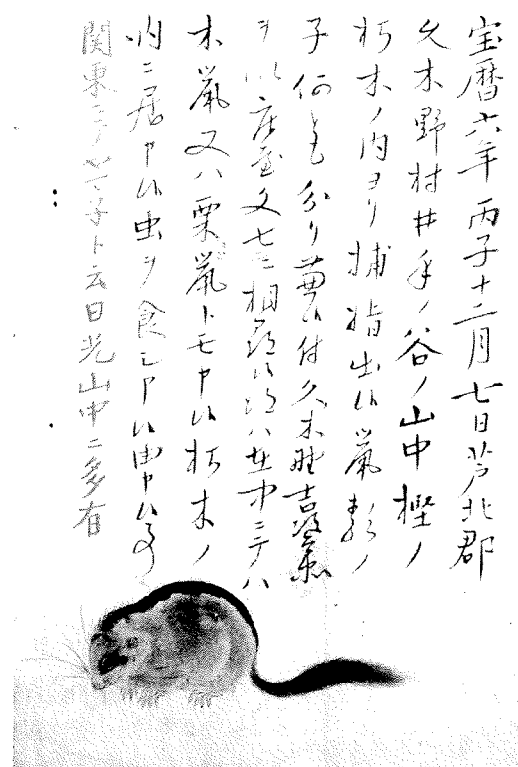 宝暦六年丙子十二月七日芦北郡
久木野村井手ノ谷ノ山中樫ノ
朽木ノ内ヨリ捕指出候鼠形ノ
子何とも分り兼候付久木野吉
ヲ以庄屋文七ニ相尋候処ハ在中ニテハ
木鼠又ハ栗鼠トモ申候朽木ノ
内ニ居申候虫ヲ食シ申候由申候事
関東ニテ子ト云日光山中ニ多有